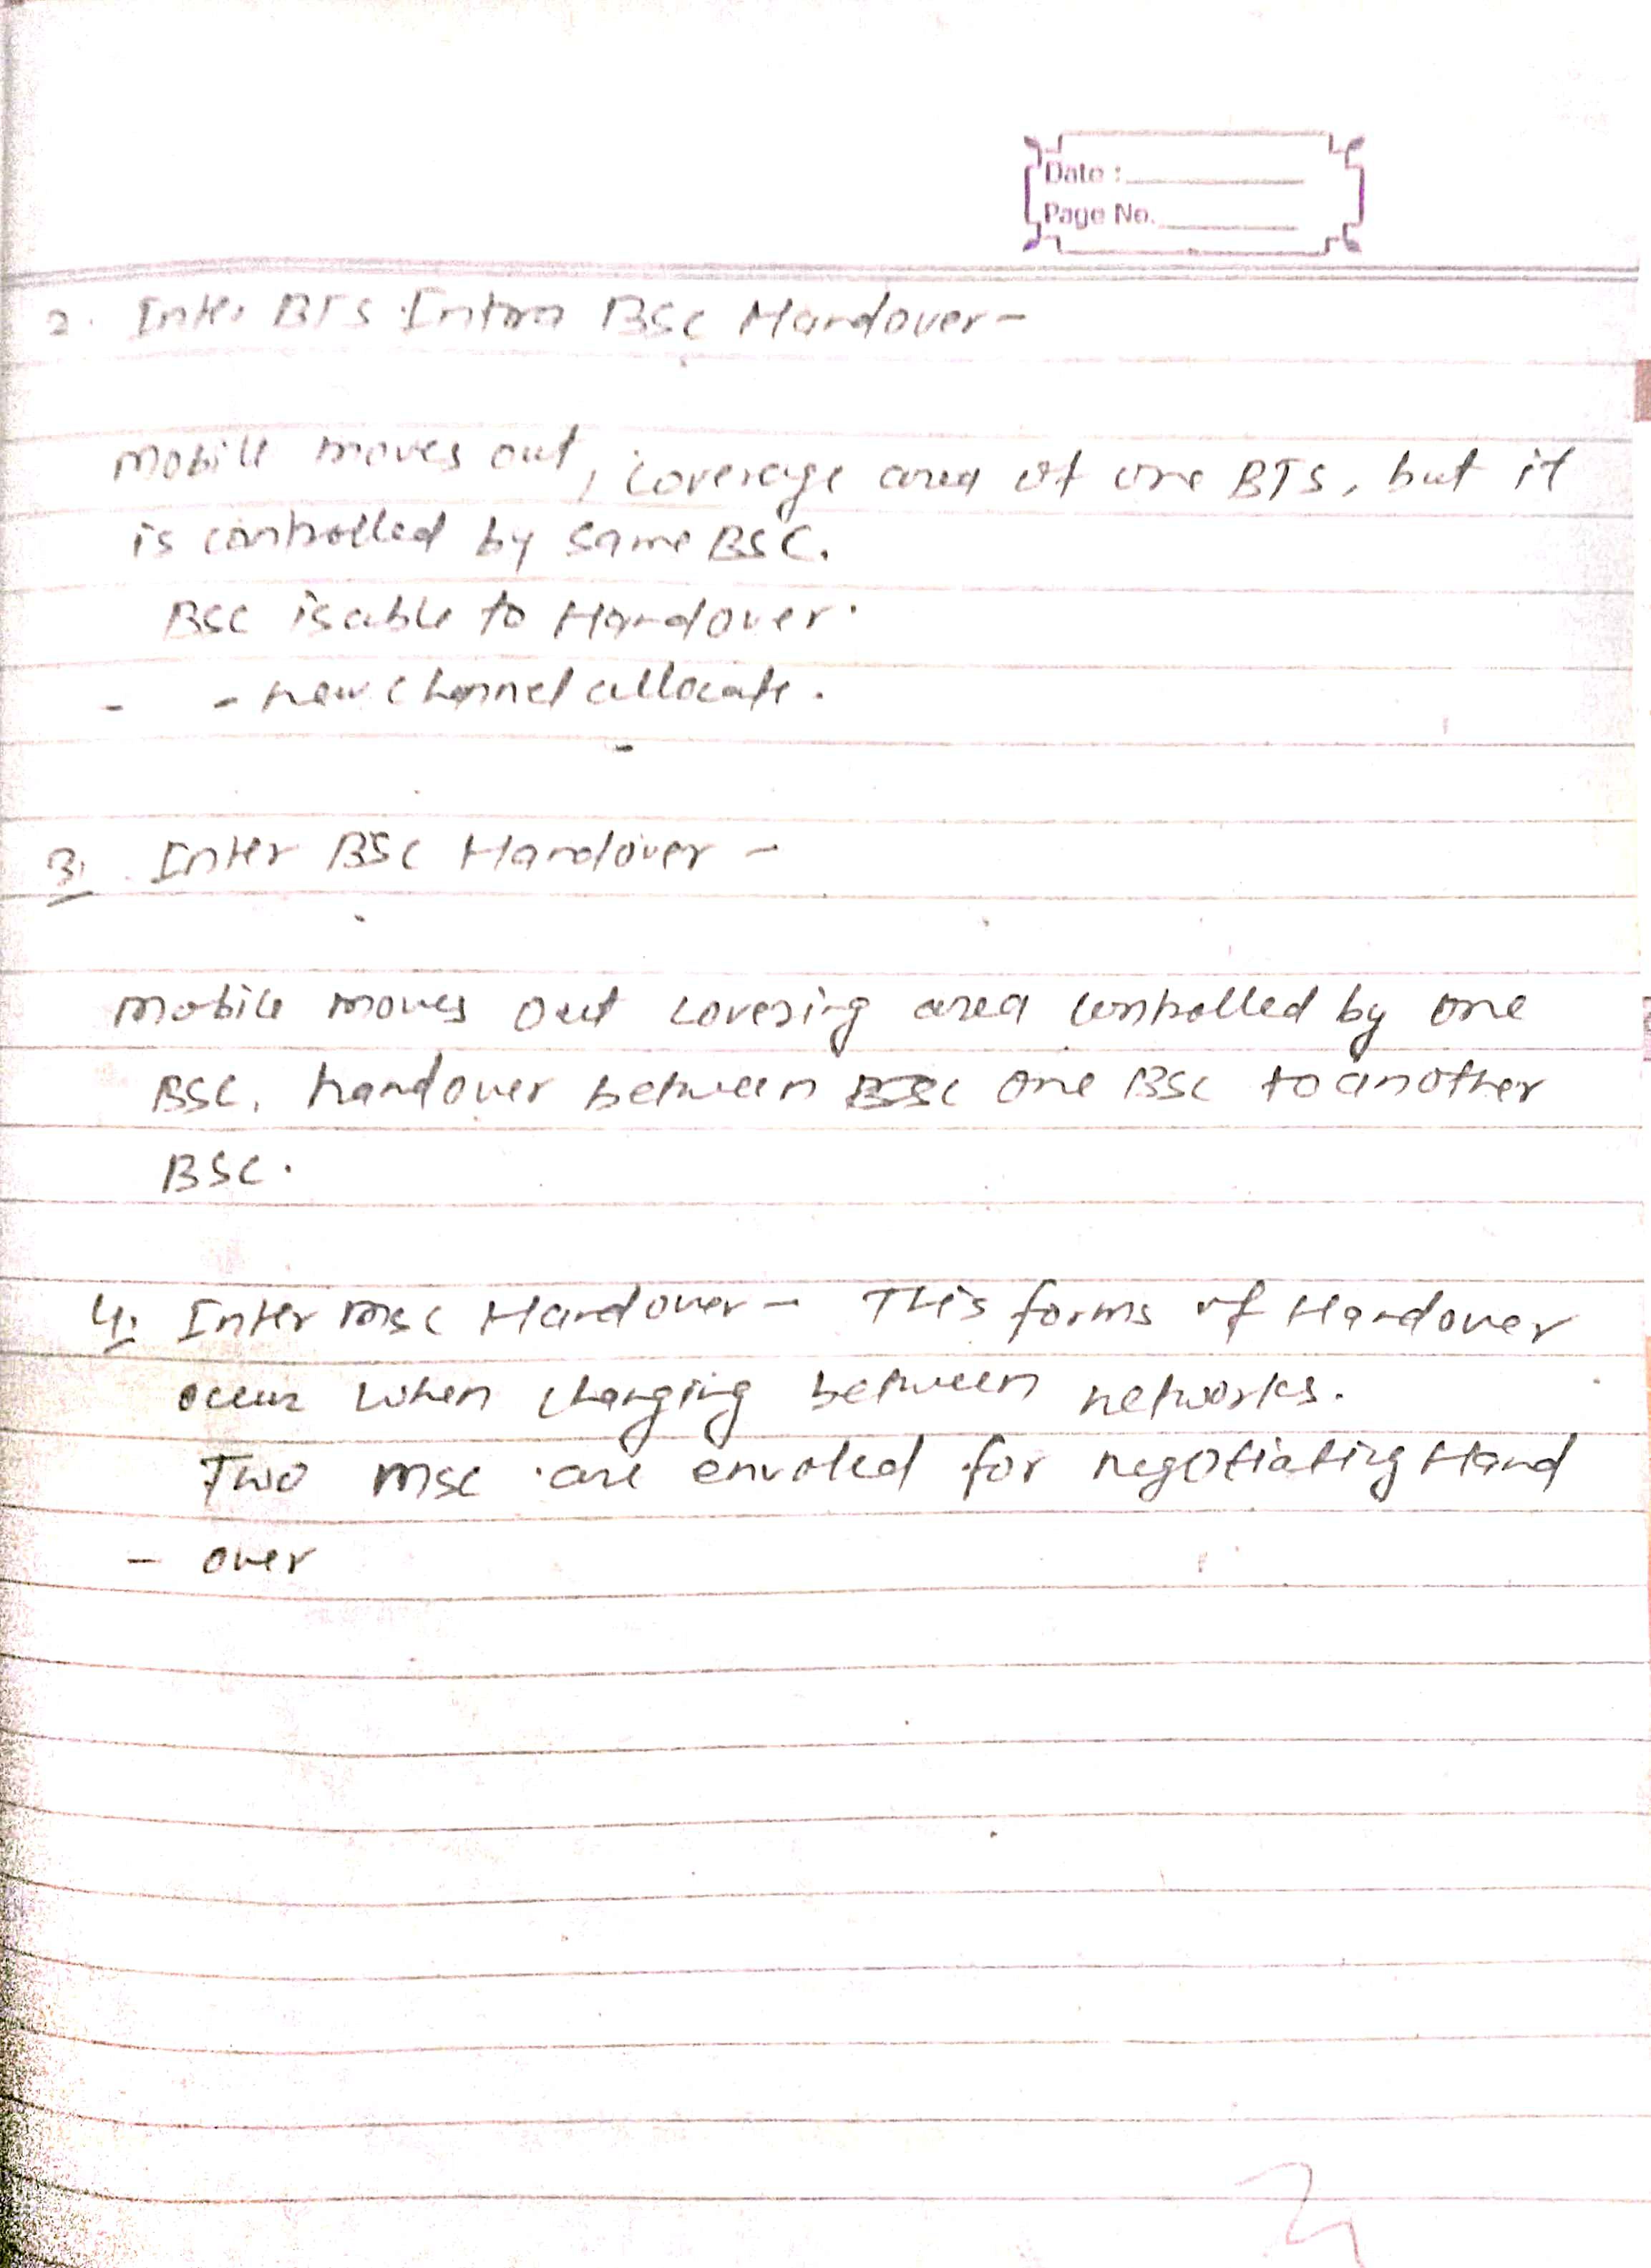 Date :
Page No.
2. Inter BTS Intra BSC Handover-
Mobile moves out, coverage area of one BTS, but it
is controlled by same BSC.
BSC is able to Handover.
- - new channel allocate.
3. Inter BSC Handover -
Mobile moves out covering area controlled by one
BSC. handover between BSC one BSC to another
BSC.
4. Inter MSC Handover - This forms of Handover
occur when changing between networks.
Two MSC are envoled for negotiating Hand
- over